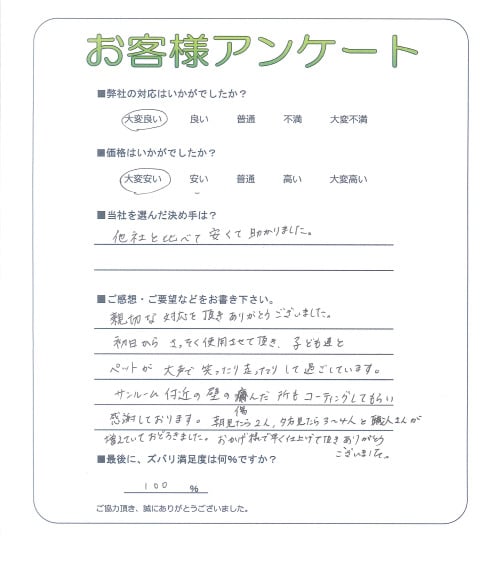 お客様アンケート
■弊社の対応はいかがでしたか？
大変良い 良い 普通 不満 大変不満
■価格はいかがでしたか？
大変安い 安い 普通 高い 大変高い
■当社を選んだ決め手は？
他社と比べて安くて助かりました。
■ご感想・ご要望などをお書き下さい。
親切な対応を頂きありがとうございました。
初日からさっそく使用させて頂き、子ども達と
ペットが大声で笑ったり走ったりして過ごしています。
サンルーム付近の壁の んだ所もコーティングしてもらい
傷
感謝しております。朝見たら2人、夕方見たら3〜4人と職人さんが
増えていておどろきました。おかげ様で早く仕上げて頂きありがとう
ございました。
■最後に、ズバリ満足度は何%ですか？
100 %
ご協力頂き、誠にありがとうございました。